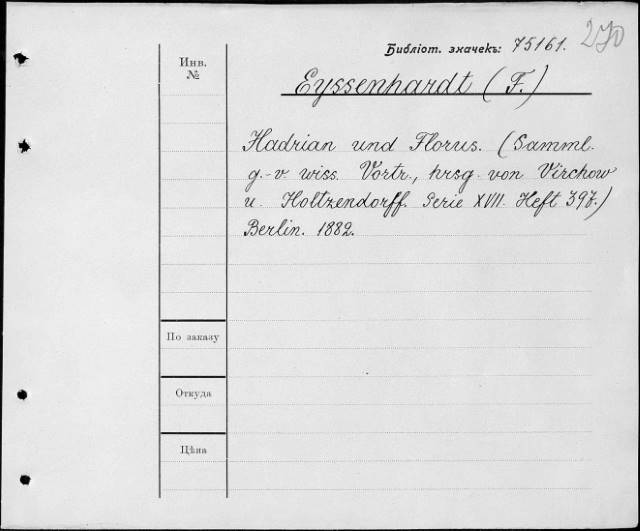 270
Библіот. значекъ: 75161.
Инв.
№
Eyssenhardt (F.)
Hadrian und Florus. (Samml.
g.-v. wiss. Vortr., hrsg. von Virchow
u. Holtzendorff. Serie XVII. Heft 397.)
Berlin. 1882.
По заказу
Откуда
Цѣна